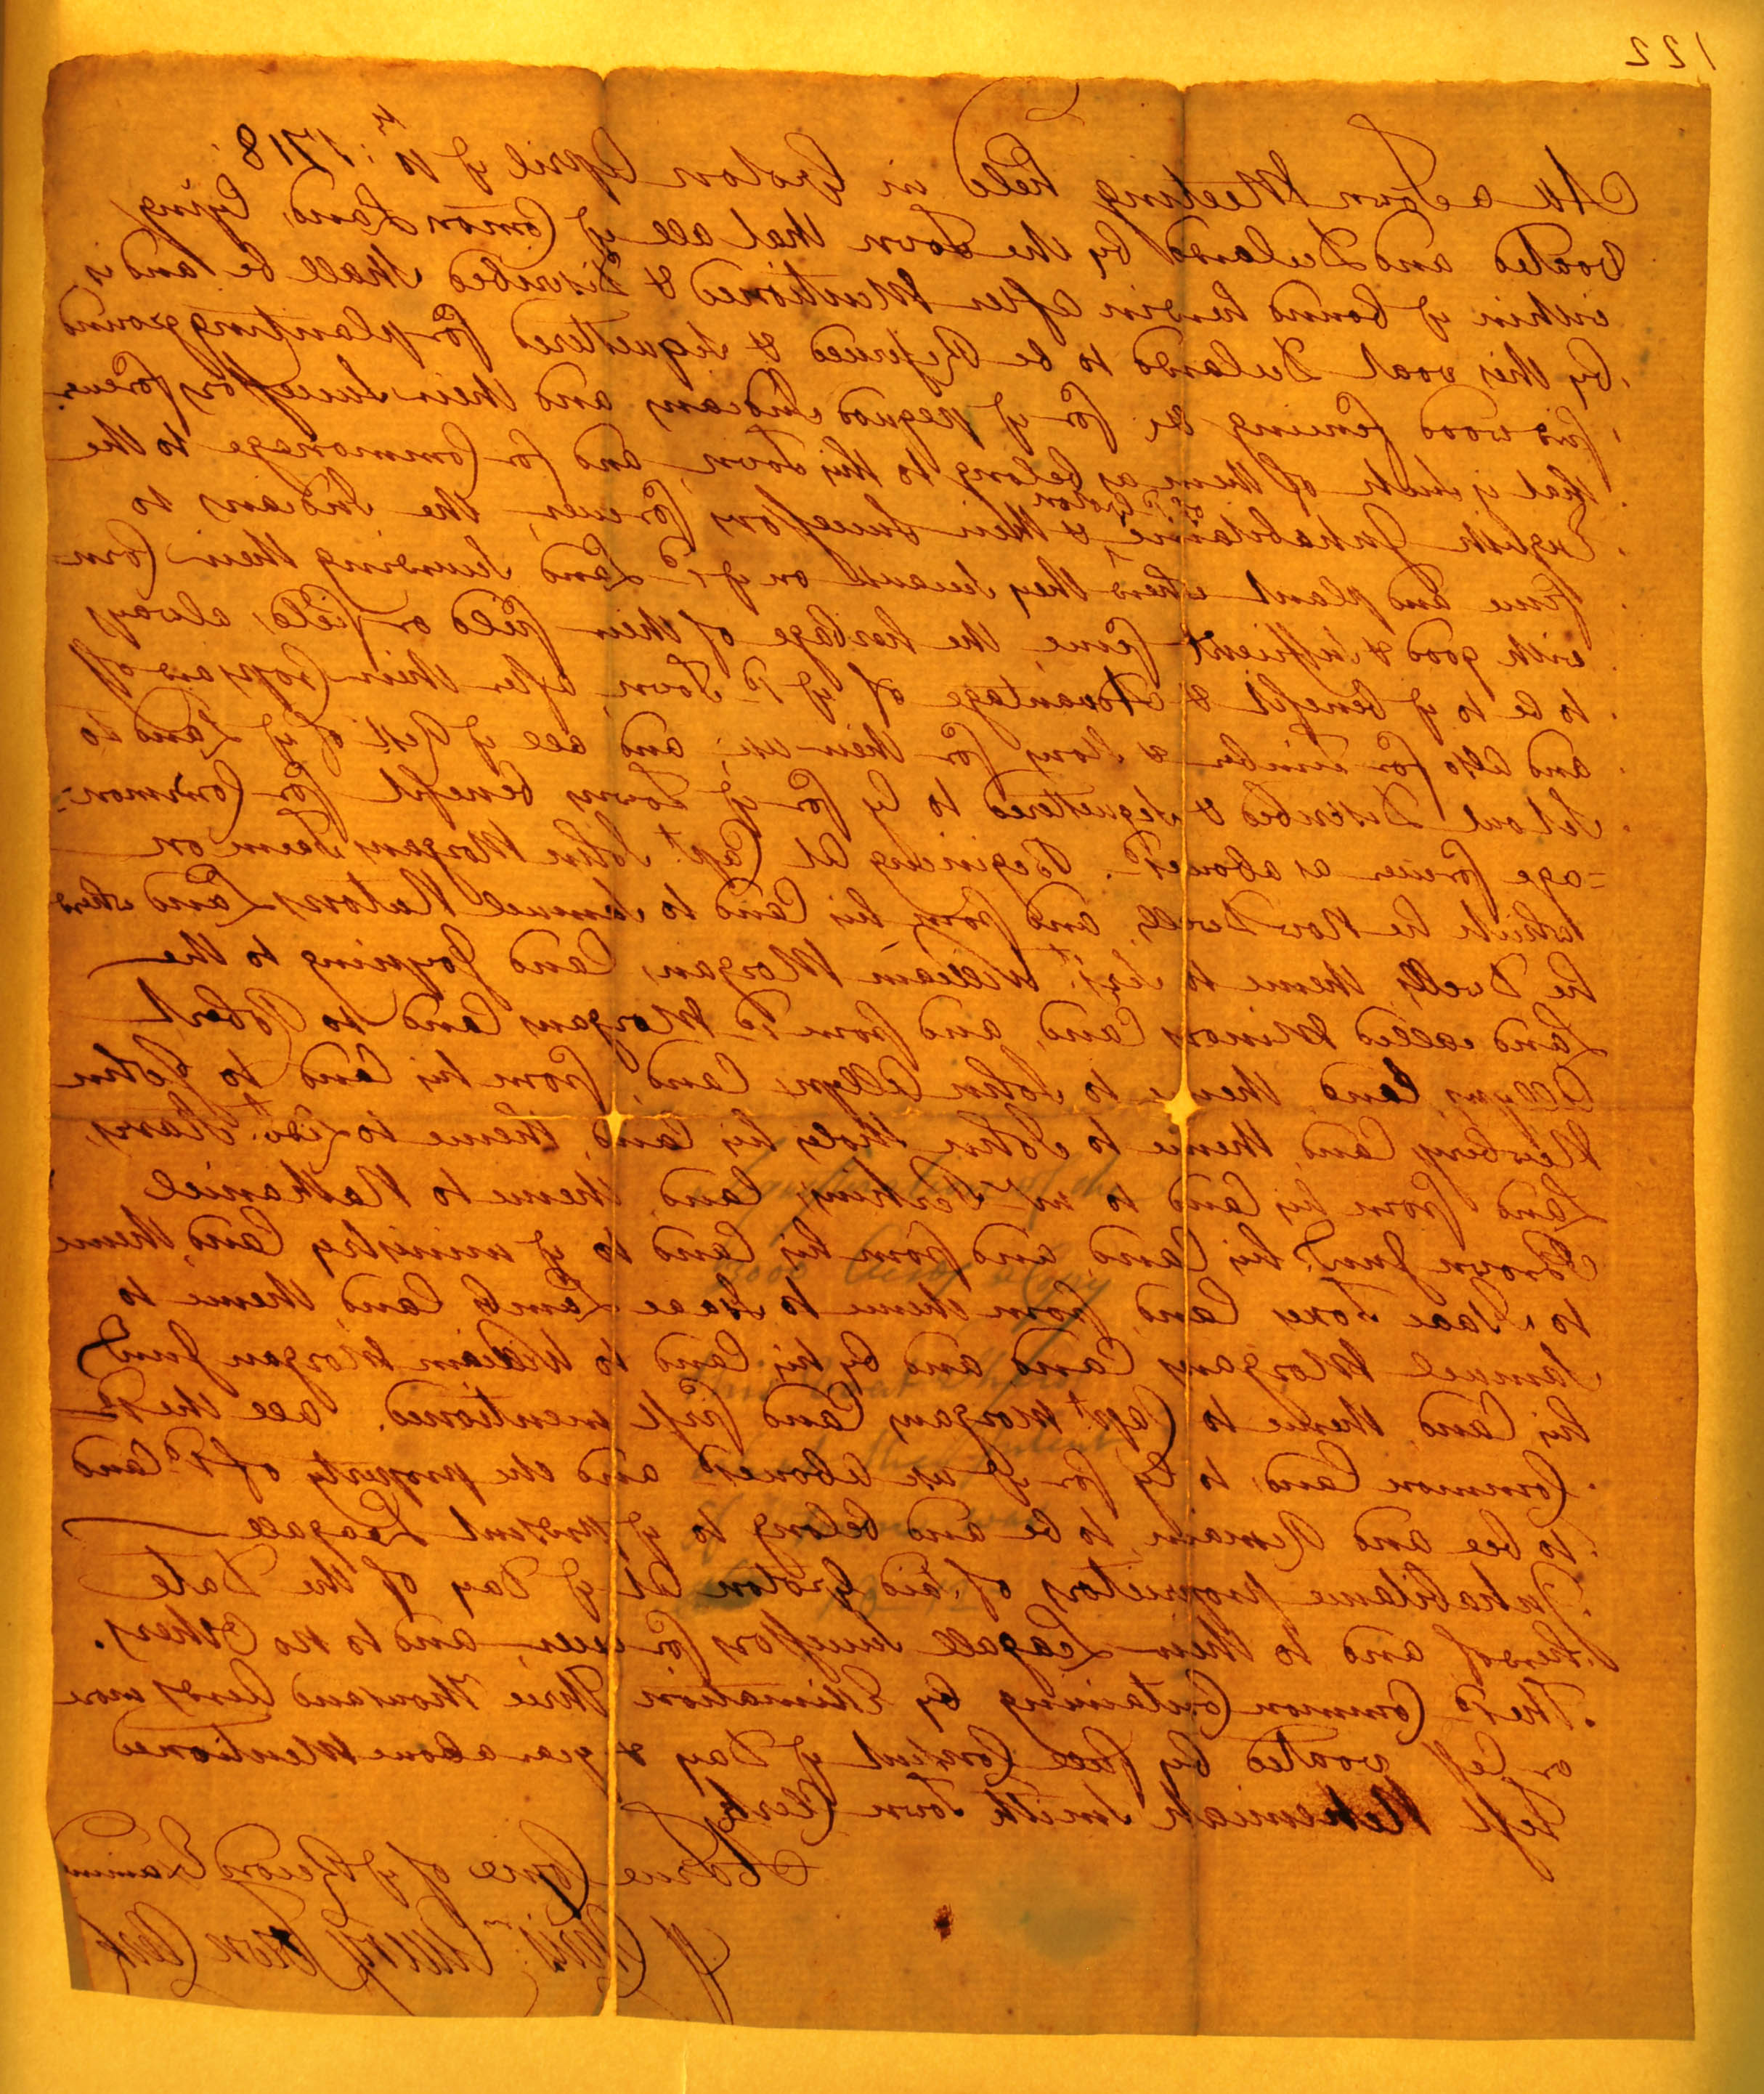 122
Att a Town Meeting held in Groton April ye 10th: 1718:
Voated and Declared by the Town that all ye Common Land, lying
within ye bounds herein after Mentioned & Discribed Shall be and is
by this voat Declared to be Reserved & Sequestered for planting ground
fire wood fencing &c for ye pequod Indians and their Successors forever
that is Such of them as belong to this Town, and for Commonage to the
English Inhabitance of sd Groton & their Successors forever, the Indians to
fence and plant where they Secant on ye sd Land Securing their Corn
with good & Suffitient fence, the herbage of their field or fields, always
to be to ye benefit & Advantage of ye sd Town, after their Crops are off
and also for timber & Stons for their use; and all ye Rest of ye Land so
Set out Discribed & Sequestered to ly for ye Towns benefit for Common=
=age forever as abovesd. Begining At Capt. John Morgans Farm on
which he Now Dwells, and from his Land to Samuel Latons Land where
he Dwells, thence to Sergt. William Morgans Land Joyning to the
Land called Minors Land, and from sd Morgans Land to Robert
Allyns Land, thence to John Allyns Land, from his Land to John
Newbery Land, thence to John his Land, thence to Lievt. Havens
Land from his Land to mr Perkins Land, thence to Nathaniel
Brown Junr. his Land, and from his Land to ye ministry Land, thence
to Isaac Foxes Land, from thence to Isaac Lambs Land, thence to
Samuel Morgans Land and by his Land to William Morgan Junr
his Land, thence to Capt Morgans Land first mentioned. all the sd
Common Land, to ly for ye use abovesd and the property of sd land
to bee and Remain, to be and belong to ye present Leagall
Inhabitance proprietors of said Groton At ye Day of the Date
hereof and to their Leagall Successors forever, and to no Others.
The sd Common Containing by Estimation Three Thousand Acres more
or Less voated by full Consent ye Day & year above Mentioned
Test Nehemiah Smith Town Clerk
A True Copie of ye Record Examined
pr Chrisr. Avery Town Clerk
3000 Acres